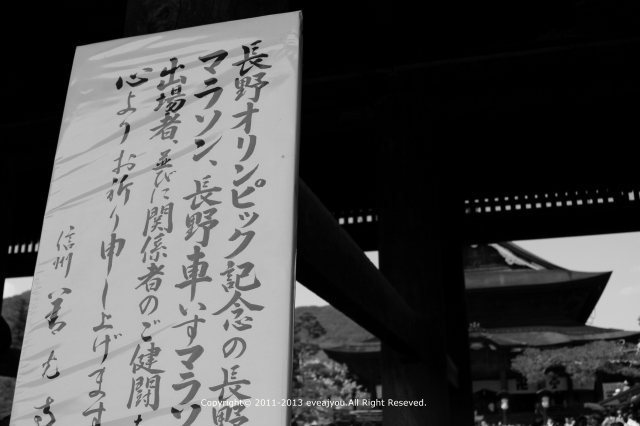 長野オリンピック記念の長野
マラソン、長野車いすマラソ
出場者、並びに関係者のご健闘を
心よりお祈り申し上げます
信州 善光寺
Copyright© 2011-2013 eveajyou.All Right Reseved.